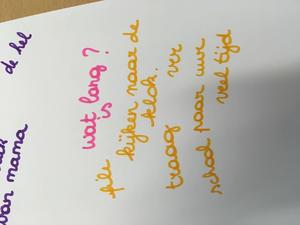 de hel
van mama
wat lang?
is
file kijken naar de
klok.
traag ver
school paar uur
veel tijd